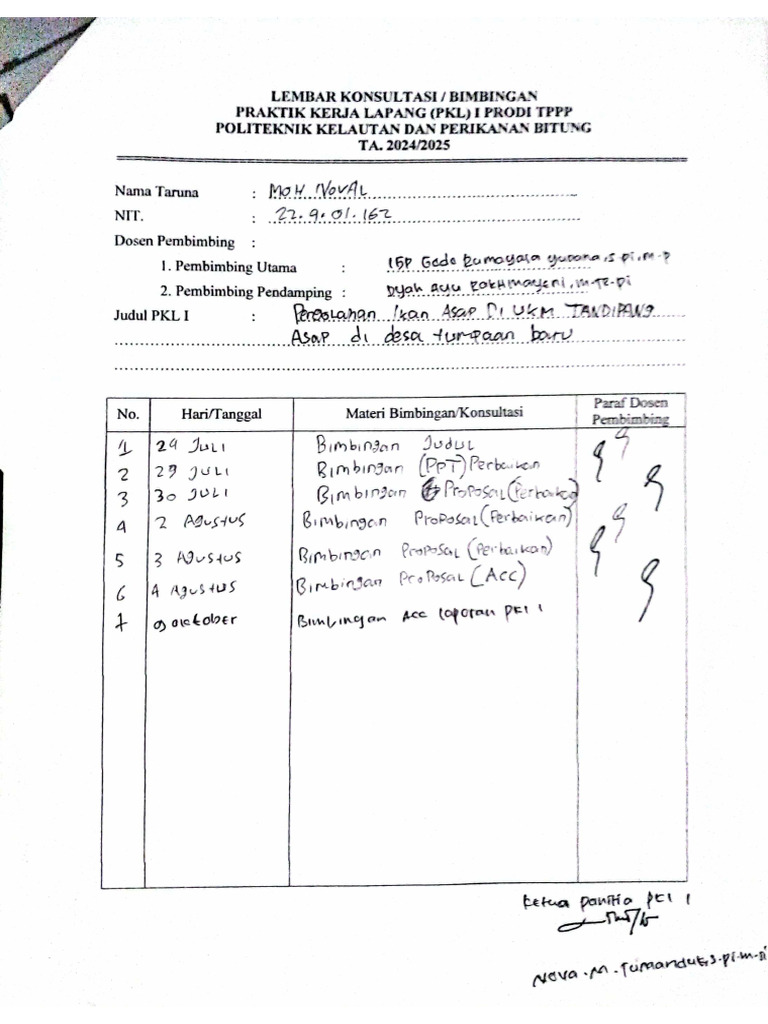 LEMBAR KONSULTASI / BIMBINGAN
PRAKTIK KERJA LAPANG (PKL) I PRODI TPPP
POLITEKNIK KELAUTAN DAN PERIKANAN BITUNG
TA. 2024/2025
Nama Taruna : MOH NOVAL
NIT. : 22.9.01.162
Dosen Pembimbing :
1. Pembimbing Utama : Gede yudana, S.pi, m.p
2. Pembimbing Pendamping : Dyah ayu Rakhmayeni, m.Tr.pi
Judul PKL I : Pengolahan Ikan Asap Di UKM TANDIPANG
Asap di desa tumpaan baru
No. Hari/Tanggal Materi Bimbingan/Konsultasi Paraf Dosen Pembimbing
1 29 JULI Bimbingan Judul
2 29 JULI Bimbingan (PPT) Perbaikan
3 30 JULI Bimbingan Proposal (Perbaikan
4 2 Agustus Bimbingan Proposal (Perbaikan)
5 3 Agustus Bimbingan Proposal (Perbaikan)
6 4 Agustus Bimbingan Proposal (Acc)
7 09 oktober Bimbingan Acc laporan PKl 1
Ketua panitia PKl 1
Nova.M.Tumanduk, S.pi.m.si